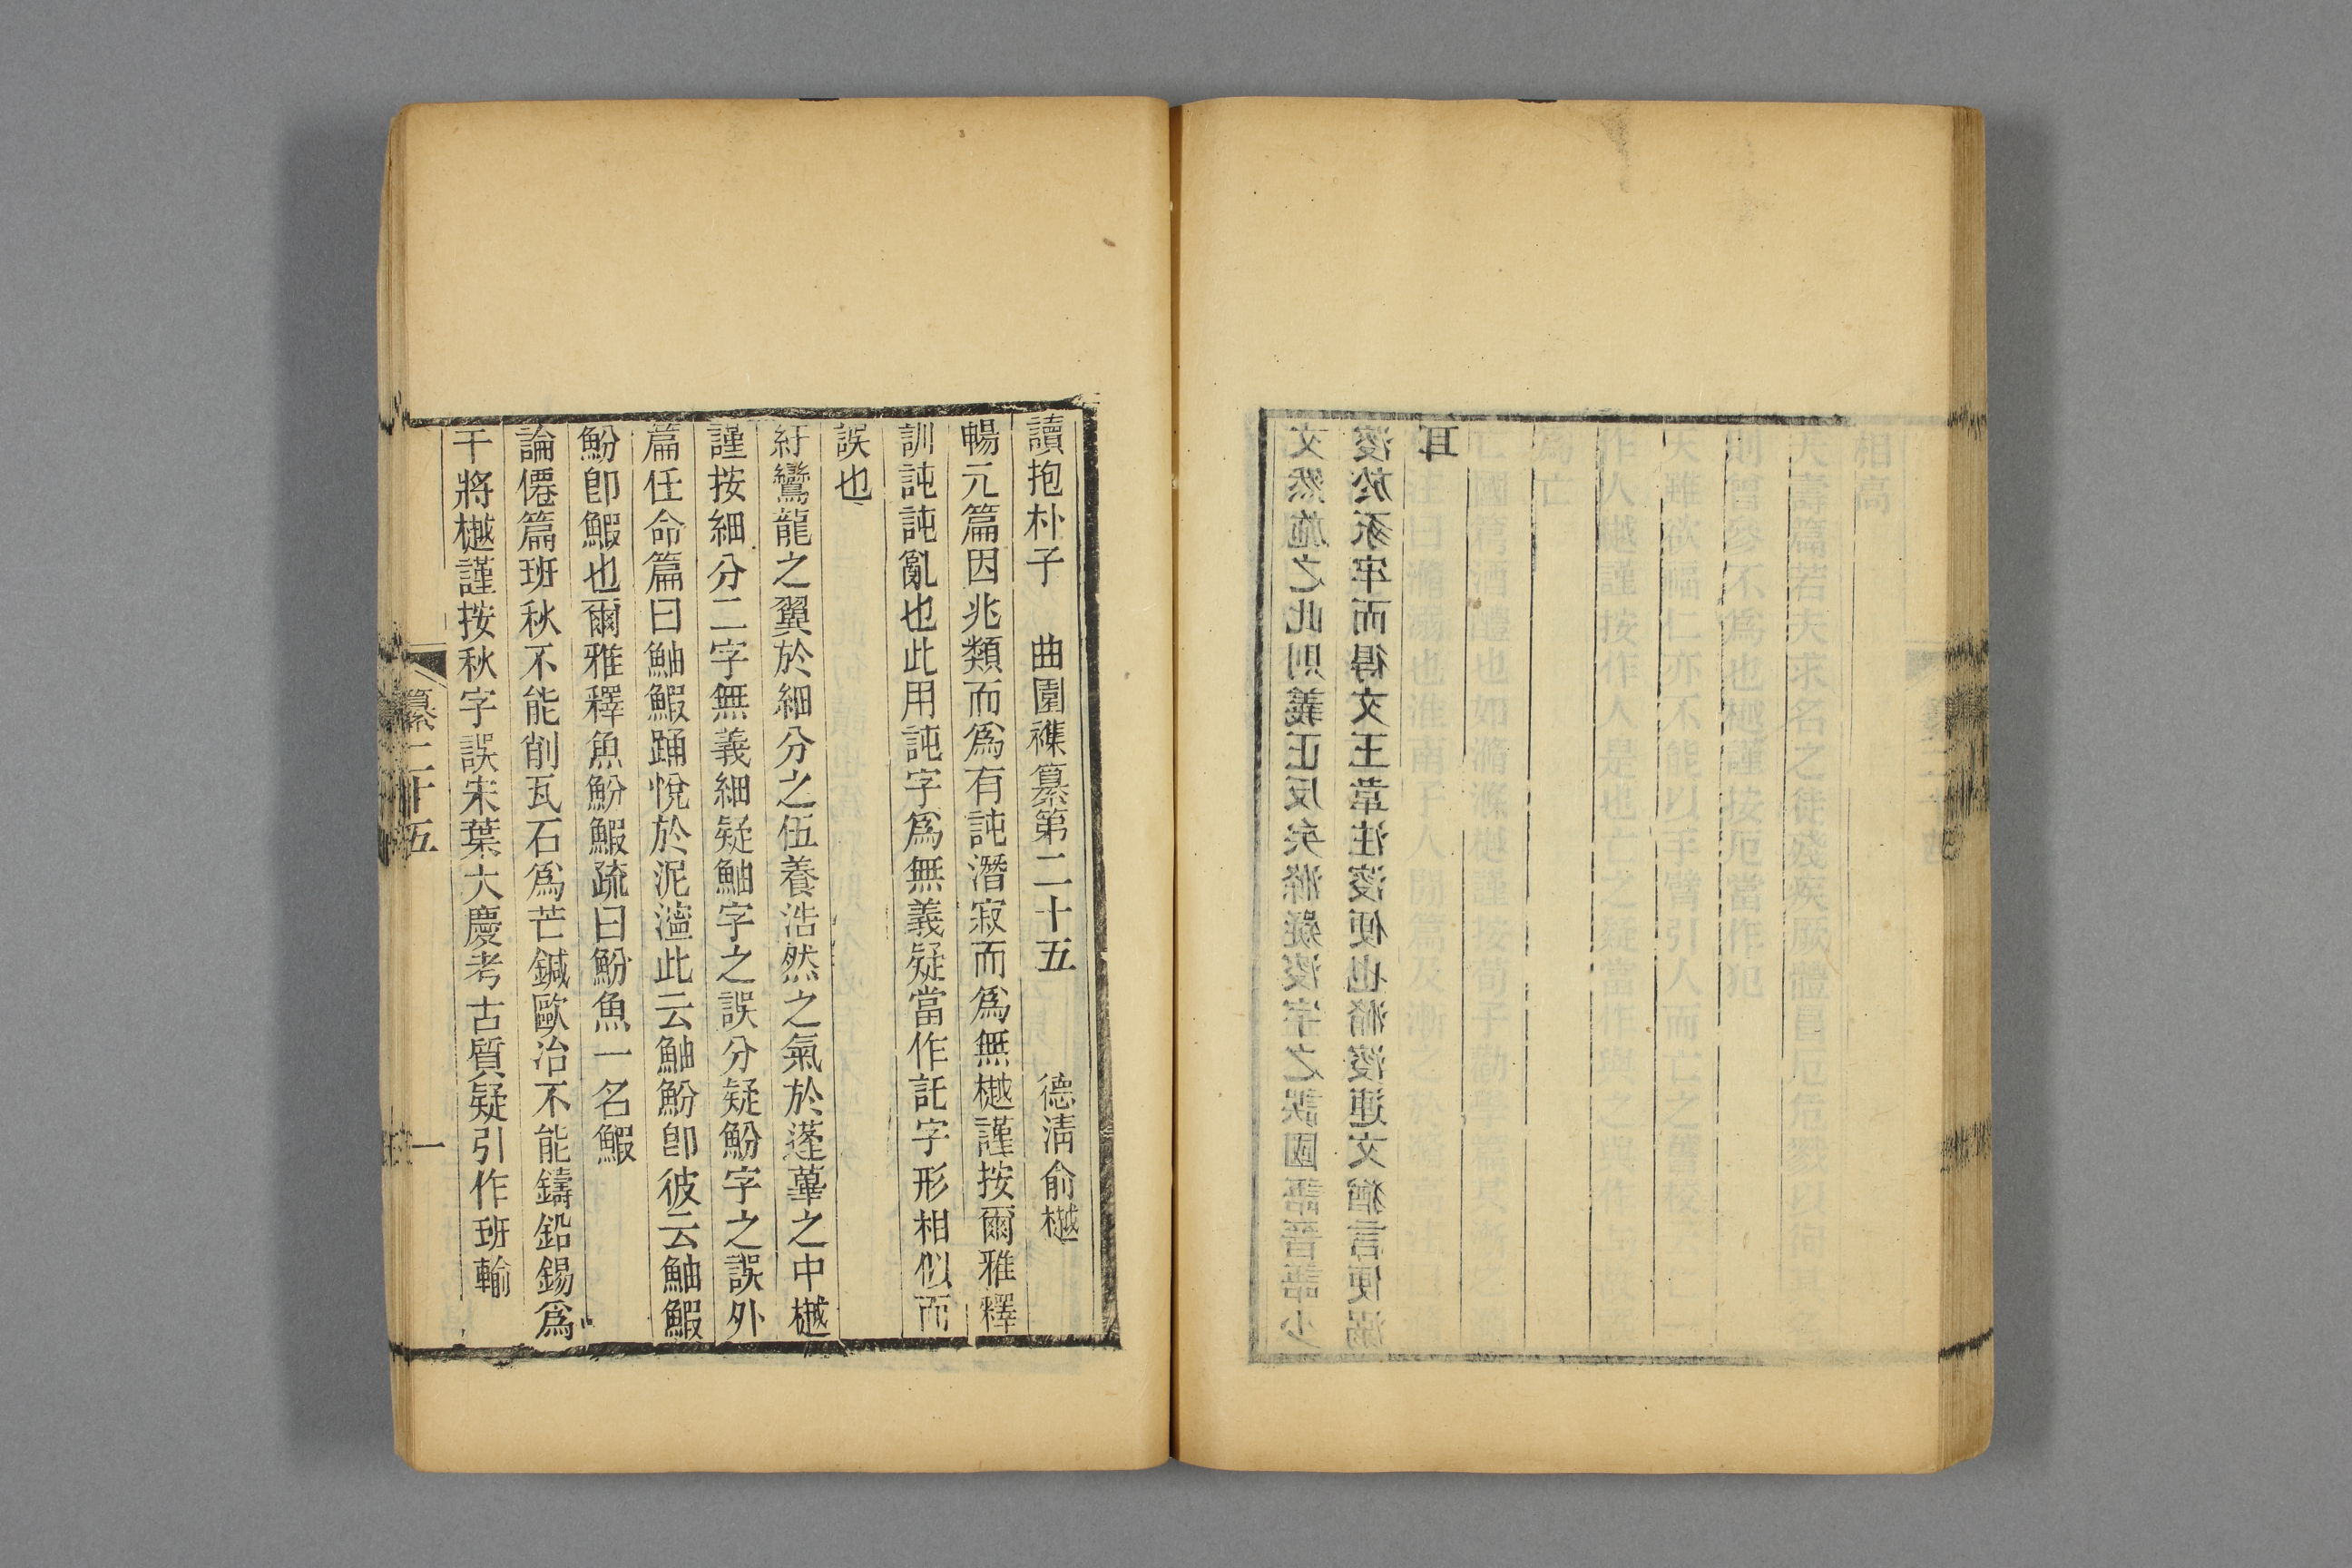 相高
夭壽篇若夫求名之徒殘疾厥體冒厄危戮以徇
則曾參不爲也樾謹按厄當作犯
雖欲幅仁亦不能以手臂引人而亡之舊校
作人樾謹按作人是也亡之疑當作與之
爲亡
亡國酒醴也如滫滌樾謹按荀子勸學篇其漸之
注曰滫溺也淮南子人閒篇及漸之於
耳
溲於豕牢而得文王韋注溲便也滫溲連文猶言便溺
文然施之此則義正反矣滌疑溲字之誤國語晉語少
讀抱朴子 曲園襍纂第二十五 德淸俞樾
暢元篇因兆類而爲有訰潛寂而爲無樾謹按爾雅釋
訓訰訰亂也此用訰字爲無義疑當作託字形相似而
誤也
紆鸞龍之翼於細分之伍養浩然之氣於蓬蓽之中樾
謹按細分二字無義細疑鮋字之誤分疑魵字之誤外
篇任命篇曰鮋鰕踊悅於泥濜此云鮋魵卽彼云鮋鰕
魵卽鰕也爾雅釋魚魵鰕疏曰魵魚一名鰕
論僊篇班秋不能削瓦石爲芒鍼歐冶不能鑄鉛錫爲
干將樾謹按秋字誤宋葉大慶考古質疑引作班輸
纂二十五
一